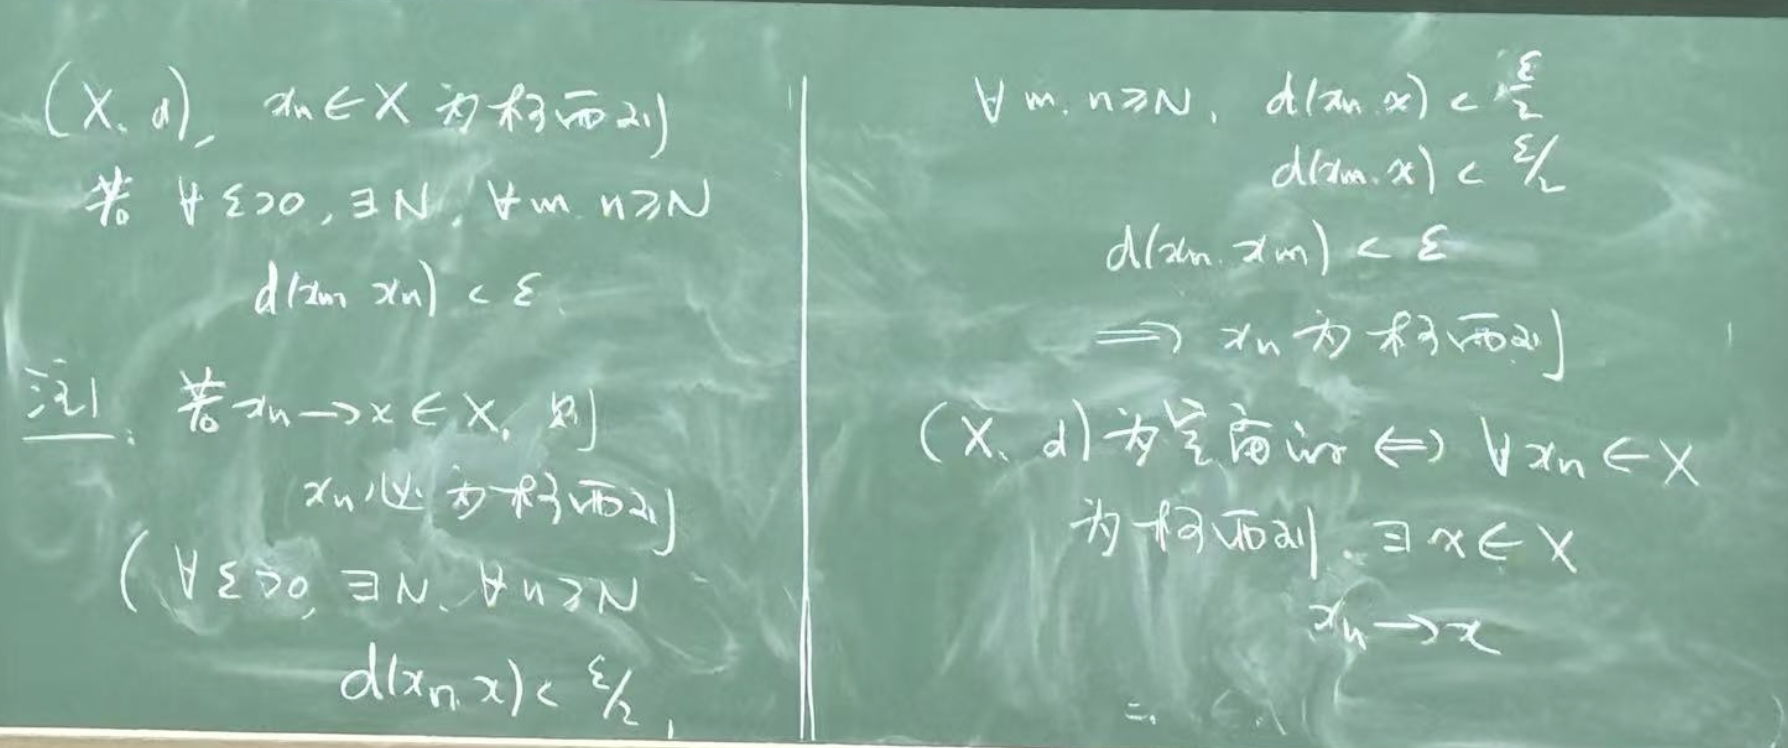 (X, d), xₙ∈X 为柯西列
若 ∀ε>0, ∃N, ∀m, n≥N
d(xₘ, xₙ) < ε.
注1: 若 xₙ→x∈X, 则
xₙ 必为柯西列
(∀ε>0, ∃N, ∀n≥N
d(xₙ, x) < ε/2,
∀m, n≥N, d(xₙ, x) < ε/2
d(xₘ, x) < ε/2
d(xₙ, xₘ) < ε
⟹ xₙ 为柯西列)
(X, d) 为完备 ⟺ ∀xₙ∈X
为柯西列, ∃x∈X
xₙ→x